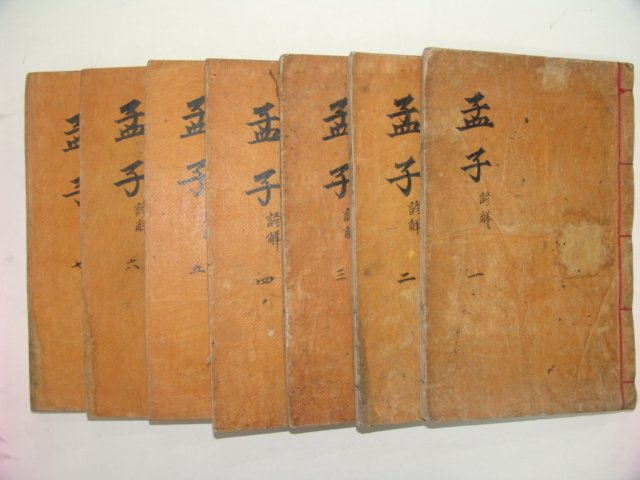 孟子
諺解
一
孟子
諺解
二
孟子
諺解
三
孟子
諺解
四
孟子
五
孟子
諺解
六
孟子
七